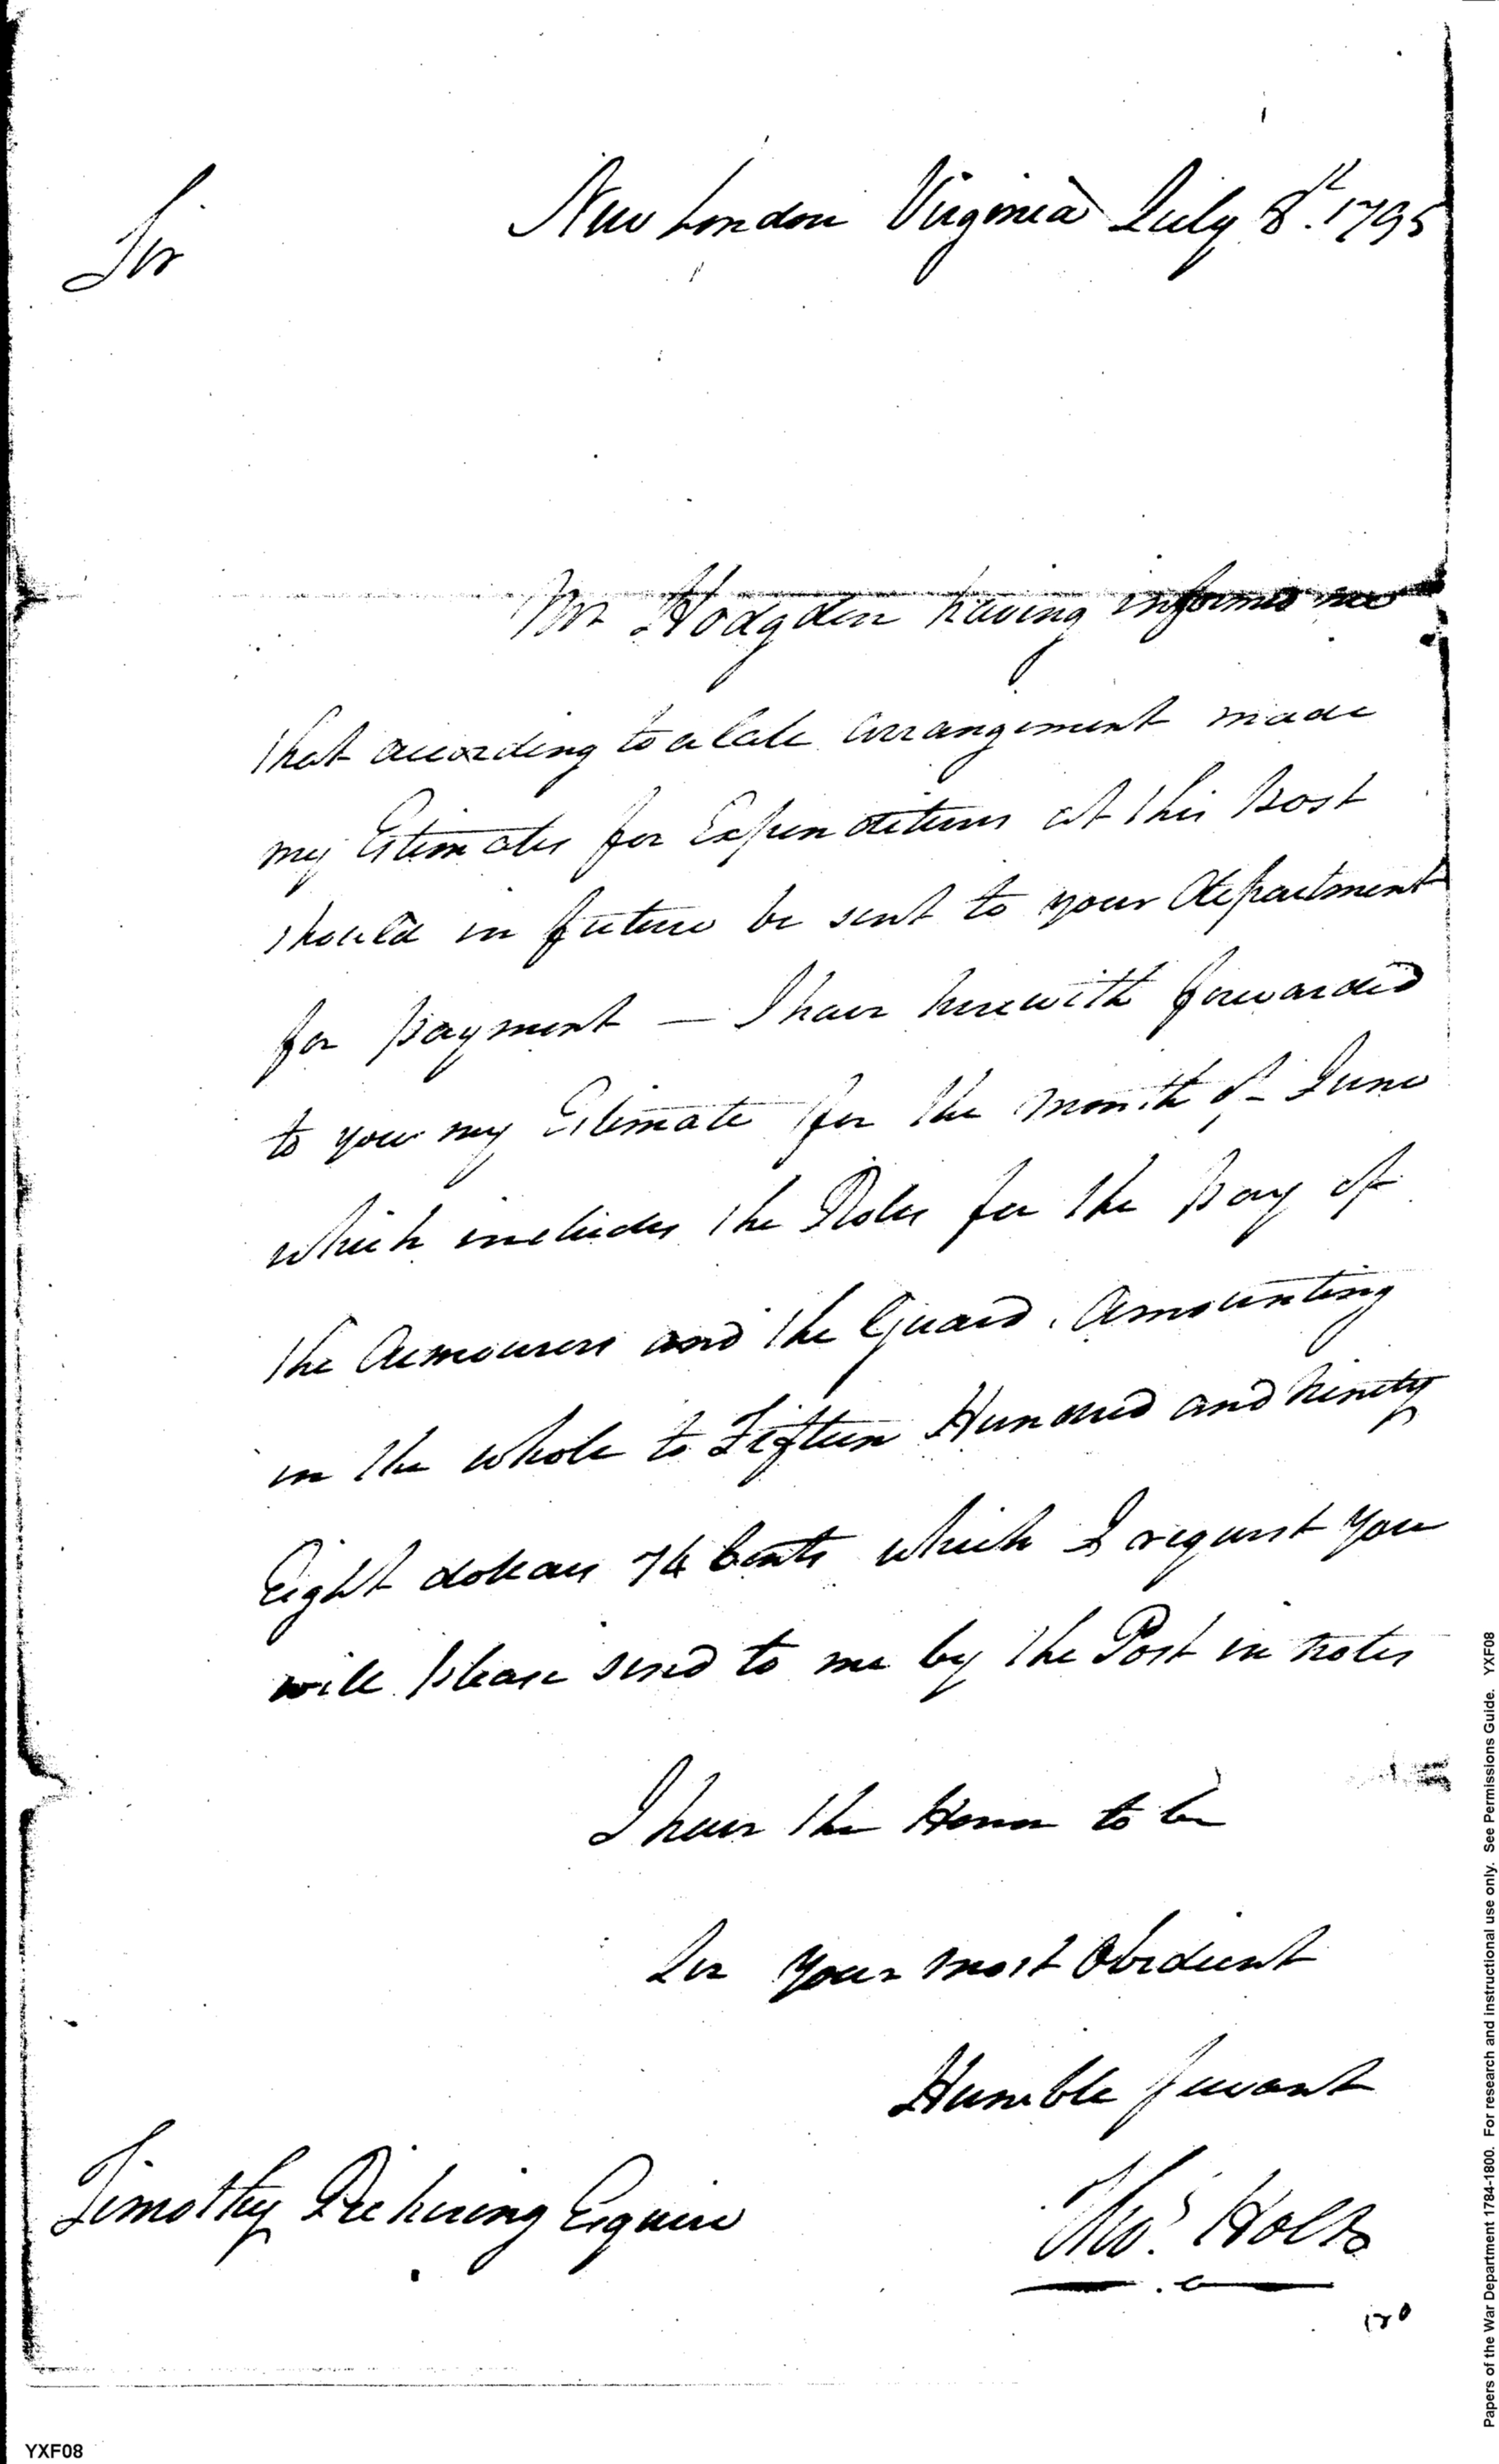 New London Virginia July 8th. 1795
Sir
Mr Hodgden having informed me
that according to a late arrangement made
my Estimates for Expenditures at this post
should in future be sent to your department
for payment — I have herewith forwarded
to you my Estimate for the month of June
which includes the Roles for the pay of
the Armourers and the Guard, amounting
in the whole to Fifteen Hundred and ninety
Eight dollars 74 Cents which I request you
will please send to me by the Post in notes
I have the Honor to be
Sir your most Obedient
Humble Servant
Thos. Holt
Timothy Pickering Esquire
YXF08
Papers of the War Department 1784-1800. For research and instructional use only. See Permissions Guide. YXF08